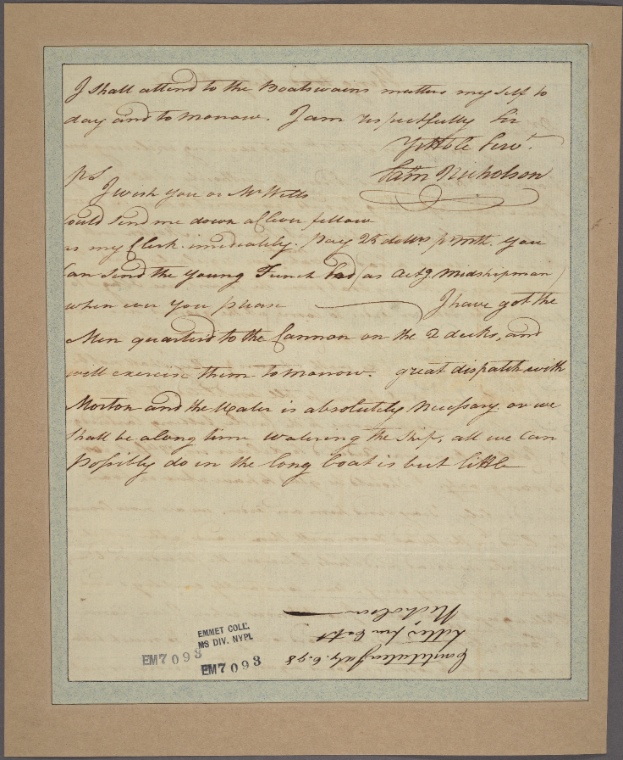 I Shall attend to the Boatswains matters my self to
day and to morrow. I am respectfully Sir
Yr Hble Servt.
Saml Nicholson
PS
I wish you or Mr Wells
could send me down a Clever fellow
as my Clerk. imediately. Pay 25 dollrs p mth. you
Can Send the Young French Lad, as Actg. midshipman
when ever You please I have got the
Men quarterd to the Cannon on the 2 decks, and
will exercise them to morrow. great dispatch with
Morton and the Water is absolutely Necessary or we
Shall be a long time watering the Ship, all we can
Possibly do in the long boat is but little
Constitution July. 6. 98
Letter from Capt
Nicholson
EMMET COLL.
MS DIV. NYPL
EM7093
EM7093